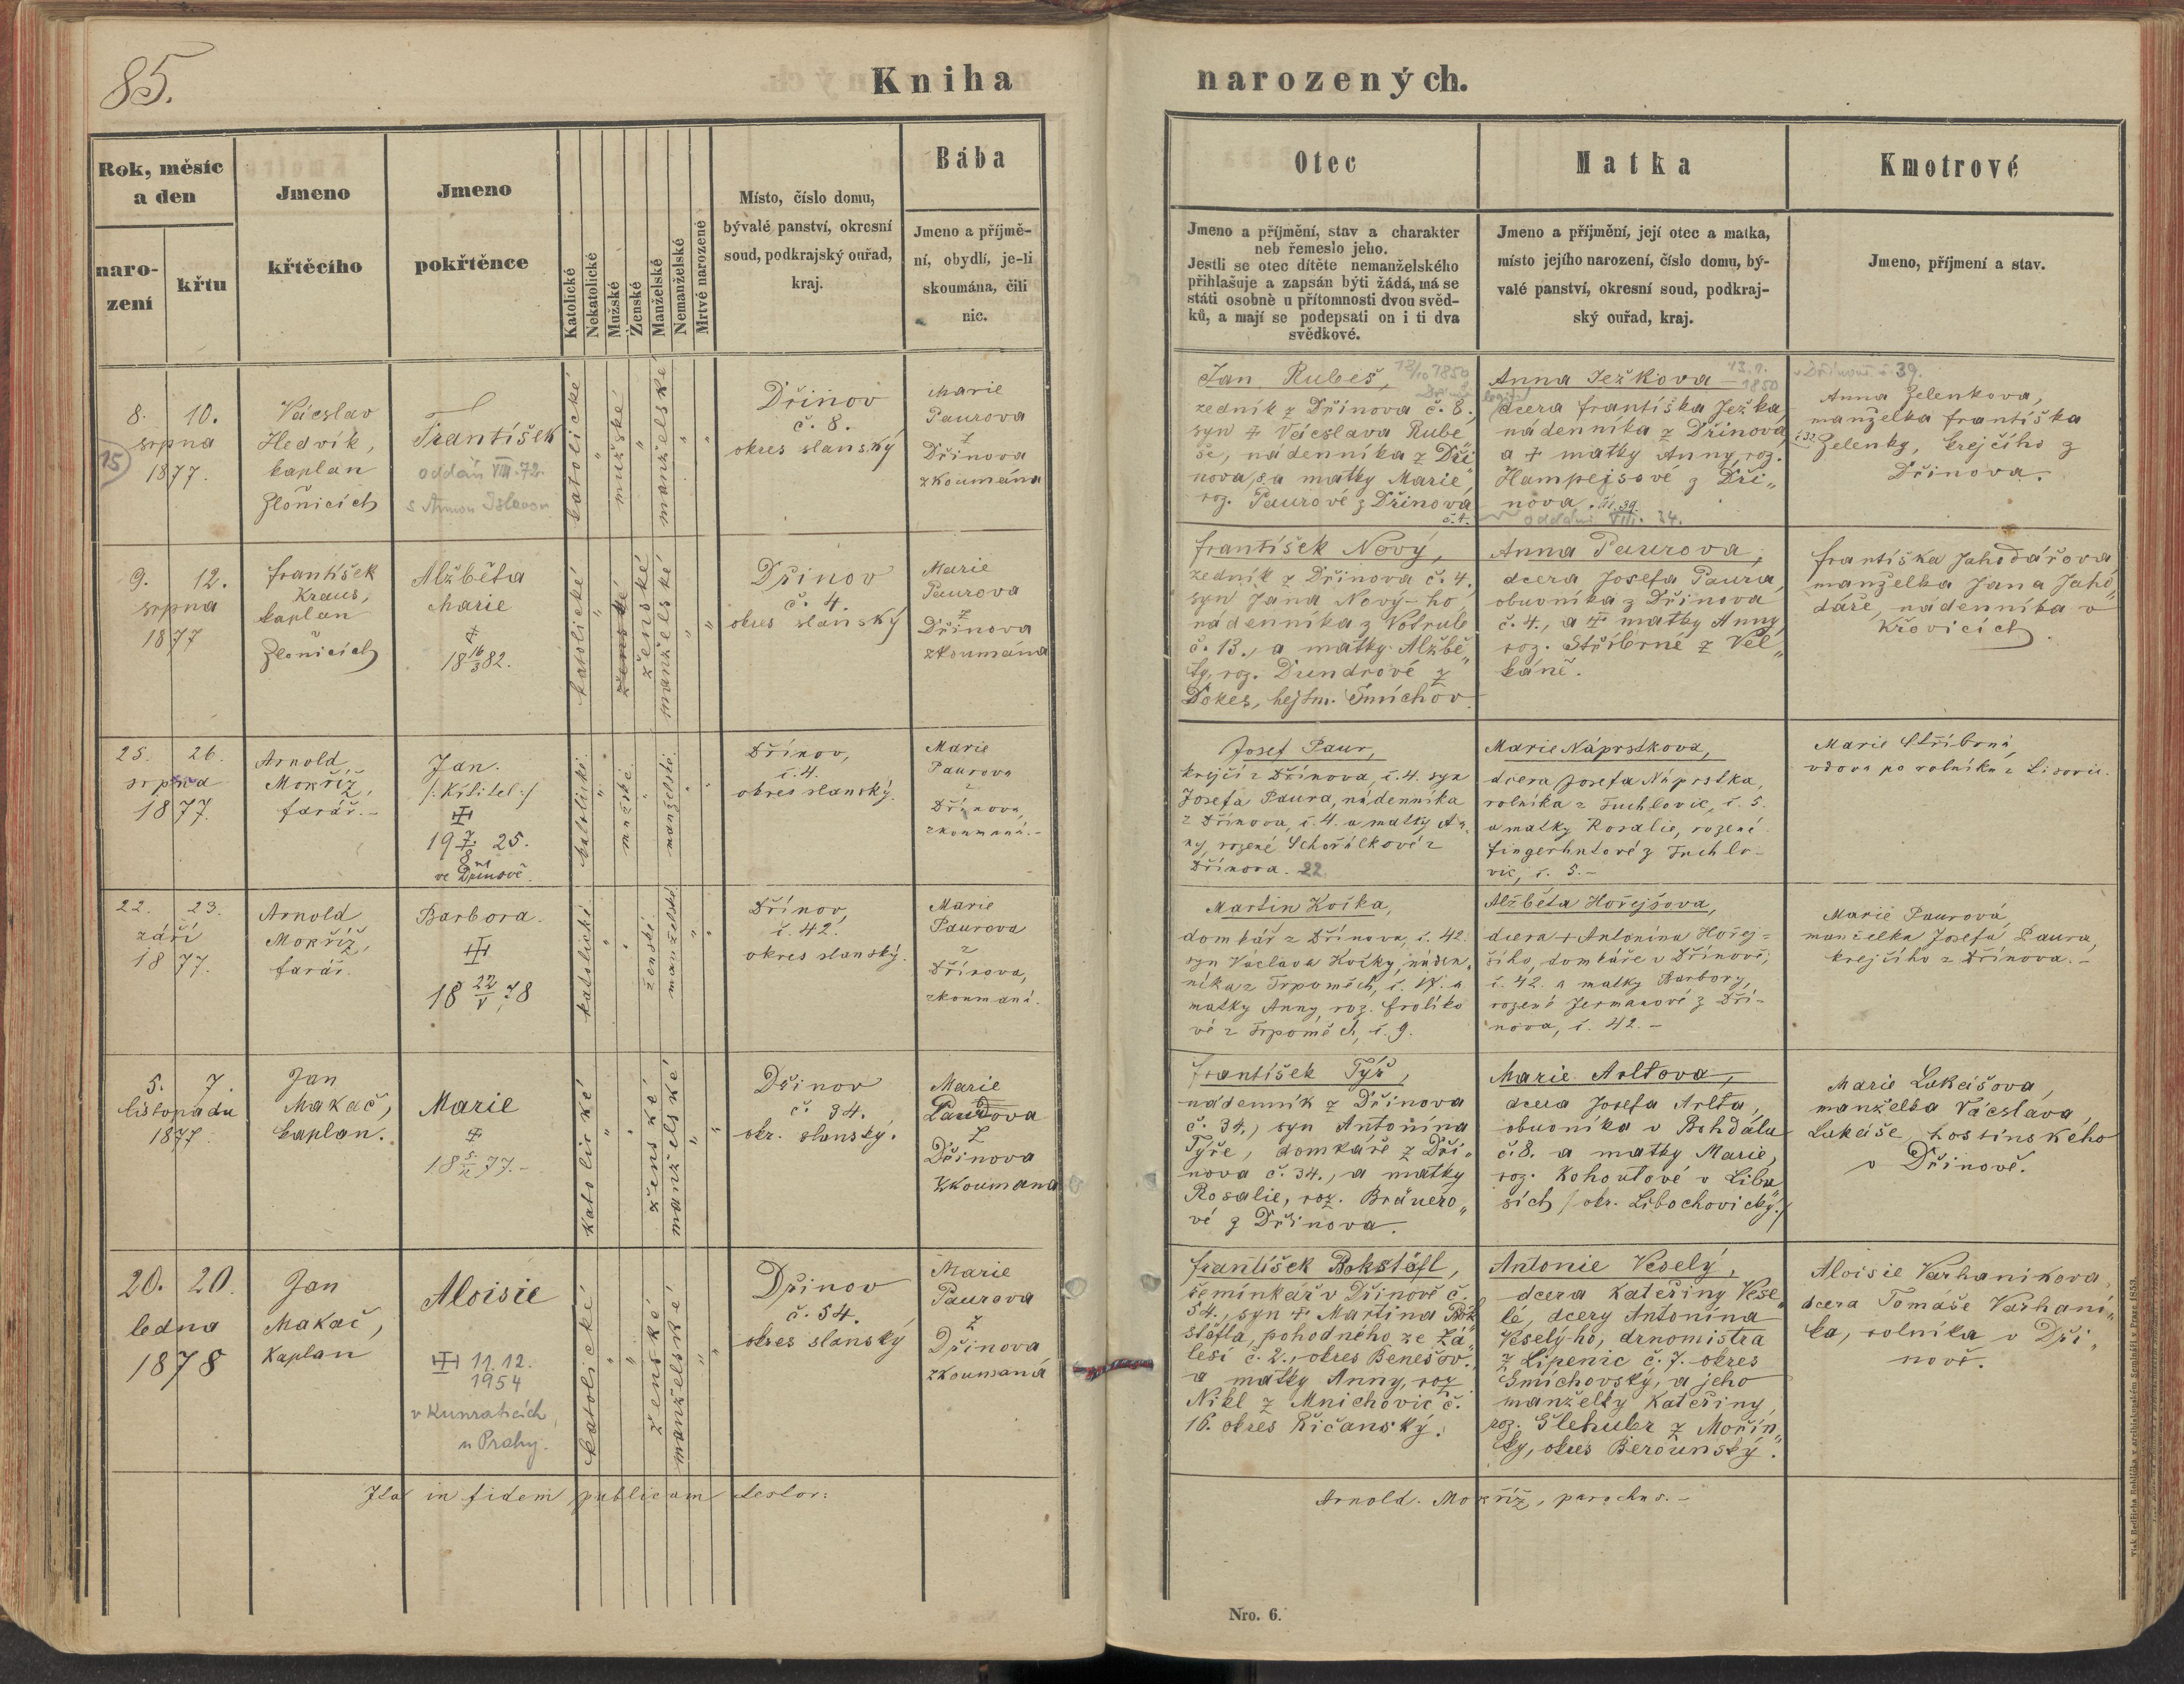 85.
Kniha
narozených.
Rok, měsíc
a den
naro-
zení
křtu
Jmeno
křtěcího
Jmeno
pokřtěnce
Katolické
Nekatolické
Mužské
Ženské
Manželské
Nemanželské
Mrtvé narozené
Místo, číslo domu,
bývalé panství, okresní
soud, podkrajský ouřad,
kraj.
Bába
Jmeno a příjmě-
ní, obydlí, je-li
skoumána, čili
nic.
Otec
Jmeno a příjmění, stav a charakter
neb řemeslo jeho.
Jestli se otec dítěte nemanželského
přihlašuje a zapsán býti žádá, má se
státi osobně u přítomnosti dvou svěd-
ků, a mají se podepsati on i ti dva
svědkové.
Matka
Jmeno a příjmění, její otec a matka,
místo jejího narození, číslo domu, bý-
valé panství, okresní soud, podkraj-
ský ouřad, kraj.
Kmotrové
Jmeno, příjmení a stav.
8. 10.
srpna
15
1877.
Vácslav
Hedvík,
kaplan
Zlonicích
František
oddán VIII. 72.
katolické
"
mužské
"
manželské
"
"
Dřinov
č. 8.
okres slanský
Marie
Paurova
z
Dřinova
zkoumána
Jan Rubeš, 12/10 1850
zedník z Dřínova č. 8.,
syn + Vácslava Rube
še, nádenníka z Dři
nova, a matky Marie,
roz. Paurové z Dřinova
č. 4.
Anna Ježkova 13.7. 1850
dcera františka Ježka,
nádenníka z Dřinova
a + matky Anny, roz.
Hampejsové z Dři„
nova. č. 39.
oddáni VIII. 34.
v Dřinově č. 39.
Anna Zelenkova,
manželka františka
Zelenky, krejčího z
Dřinova.
9. 12.
srpna
1877
františek
Kraus,
kaplan
Zlonicích
Alžběta
Marie
+
18 16/3 82.
katolické
"
ženské
ženské
manželské
"
"
Dřinov
č. 4.
okres slanský
Marie
Paurova
z
Dřinova
zkoumána
františek Nový,
zedník z Dřinova č. 4.,
syn Jana Nový-ho,
nádenníka z Votrub
č. 13., a matky Alžbě„
ty, roz. Dundrové z
Dokes, hejtm. Smíchov.
Anna Paurova,
dcera Josefa Paura,
obuvníka z Dřinova
č. 4., a + matky Anny
roz. Stříbrné z Vel„
káně.
františka Jahodářova
manželka Jana Jaho„
dáře, nádenníka v
Křovicích.
25. 26.
srpna
1877.
Arnold
Mokříž,
farář.-
Jan.
/:Křtitel:/
19 7/8 25.
ve Dřínově.
katolické.
"
mužské.
"
manželské.
"
"
Dřínov,
č. 4.
okres slanský.
Marie
Paurova
z
Dřínova,
zkoumaná.-
Josef Paur,
krejčí z Dřínova, č. 4. syn
Josefa Paura, nádenníka
z Dřínova, č. 4. a matky An
ny, rozené Schořálkové z
Dřínova. 22
Marie Náprstkova,
dcera Josefa Náprstka,
rolníka z Tuchlovic, č. 5.
a matky Rosalie, rozené
Fingerhutové z Tuchlo-
vic, č. 5.-
Marie Stříbrná,
vdova po rolníku z Lisovic.
22. 23.
září
1877.
Arnold
Mokříž,
farář.
Barbora.
18 22/V 78
katolické.
"
"
ženské.
manželské.
"
"
Dřínov,
č. 42.
okres slanský.
Marie
Paurova
z
Dřínova,
zkoumaná.
Martin Kočka,
domkář z Dřínova, č. 42.
syn Václava Kočky, náden„
níka z Trpoměch, č. 17. a
matky Anny, roz. frolíko
vé z Trpoměch, č. 9.
Alžběta Hořejšova,
dcera + Antonína Hořej-
šího, domkáře v Dřínově,
č. 42. a matky Barbory,
rozené Jermanové z Dří-
nova, č. 42.-
Marie Paurová,
manželka Josefa Paura,
krejčího z Dřínova.-
5. 7.
listopadu
1877.
Jan
Makač,
kaplan.
Marie
+
18 5/12 77.-
katolické
"
"
ženské
manželské
"
"
Dřinov
č. 34.
okr. slanský.
Marie
Paurova
z
Dřinova
zkoumana
františek Týř,
nádenník z Dřinova
č. 34., syn Antonína
Týře, domkáře z Dři„
nova č. 34., a matky
Rosalie, roz. Bräuero„
vé z Dřinova.
Marie Arltova,
dcera Josefa Arlta,
obuvníka v Bohdálu
č. 8. a matky Marie,
roz. Kohoutové v Libu
sích /okr. Libochovický./
Marie Lukášova,
manželka Vácslava
Lukáše hostinského
v Dřinově.
20. 20.
ledna
1878
Jan
Makač,
Kaplan
Aloisie
11. 12.
1954
v Kunraticích,
u Prahy.
katolické
"
"
ženské
manželské
"
"
Dřinov
č. 54.
okres slanský
Marie
Paurova
z
Dřinova
zkoumaná
františek Bokštäfl,
řemínkář v Dřinově č.
54., syn + Martina Bok
štäfla, pohodného ze Zá„
lesí č. 2., okres Benešov.,
a matky Anny, roz.
Nikl z Mnichovic č.
16. okres Říčanský.
Antonie Veselý,
dcera Kateřiny Vese„
lé, dcery Antonína
Veselý-ho, drnomistra
z Lipenic č. 7. okres
Smíchovský, a jeho
manželky Kateřiny,
roz. Šlehubr z Mořin„
ky, okres Berounský.
Aloisie Varhaníkova,
dcera Tomáše Varhaní„
ka, rolníka v Dři„
nově.
Ita in fidem publicam testor:
Arnold. Mokříž, parochus.-
Nro. 6.